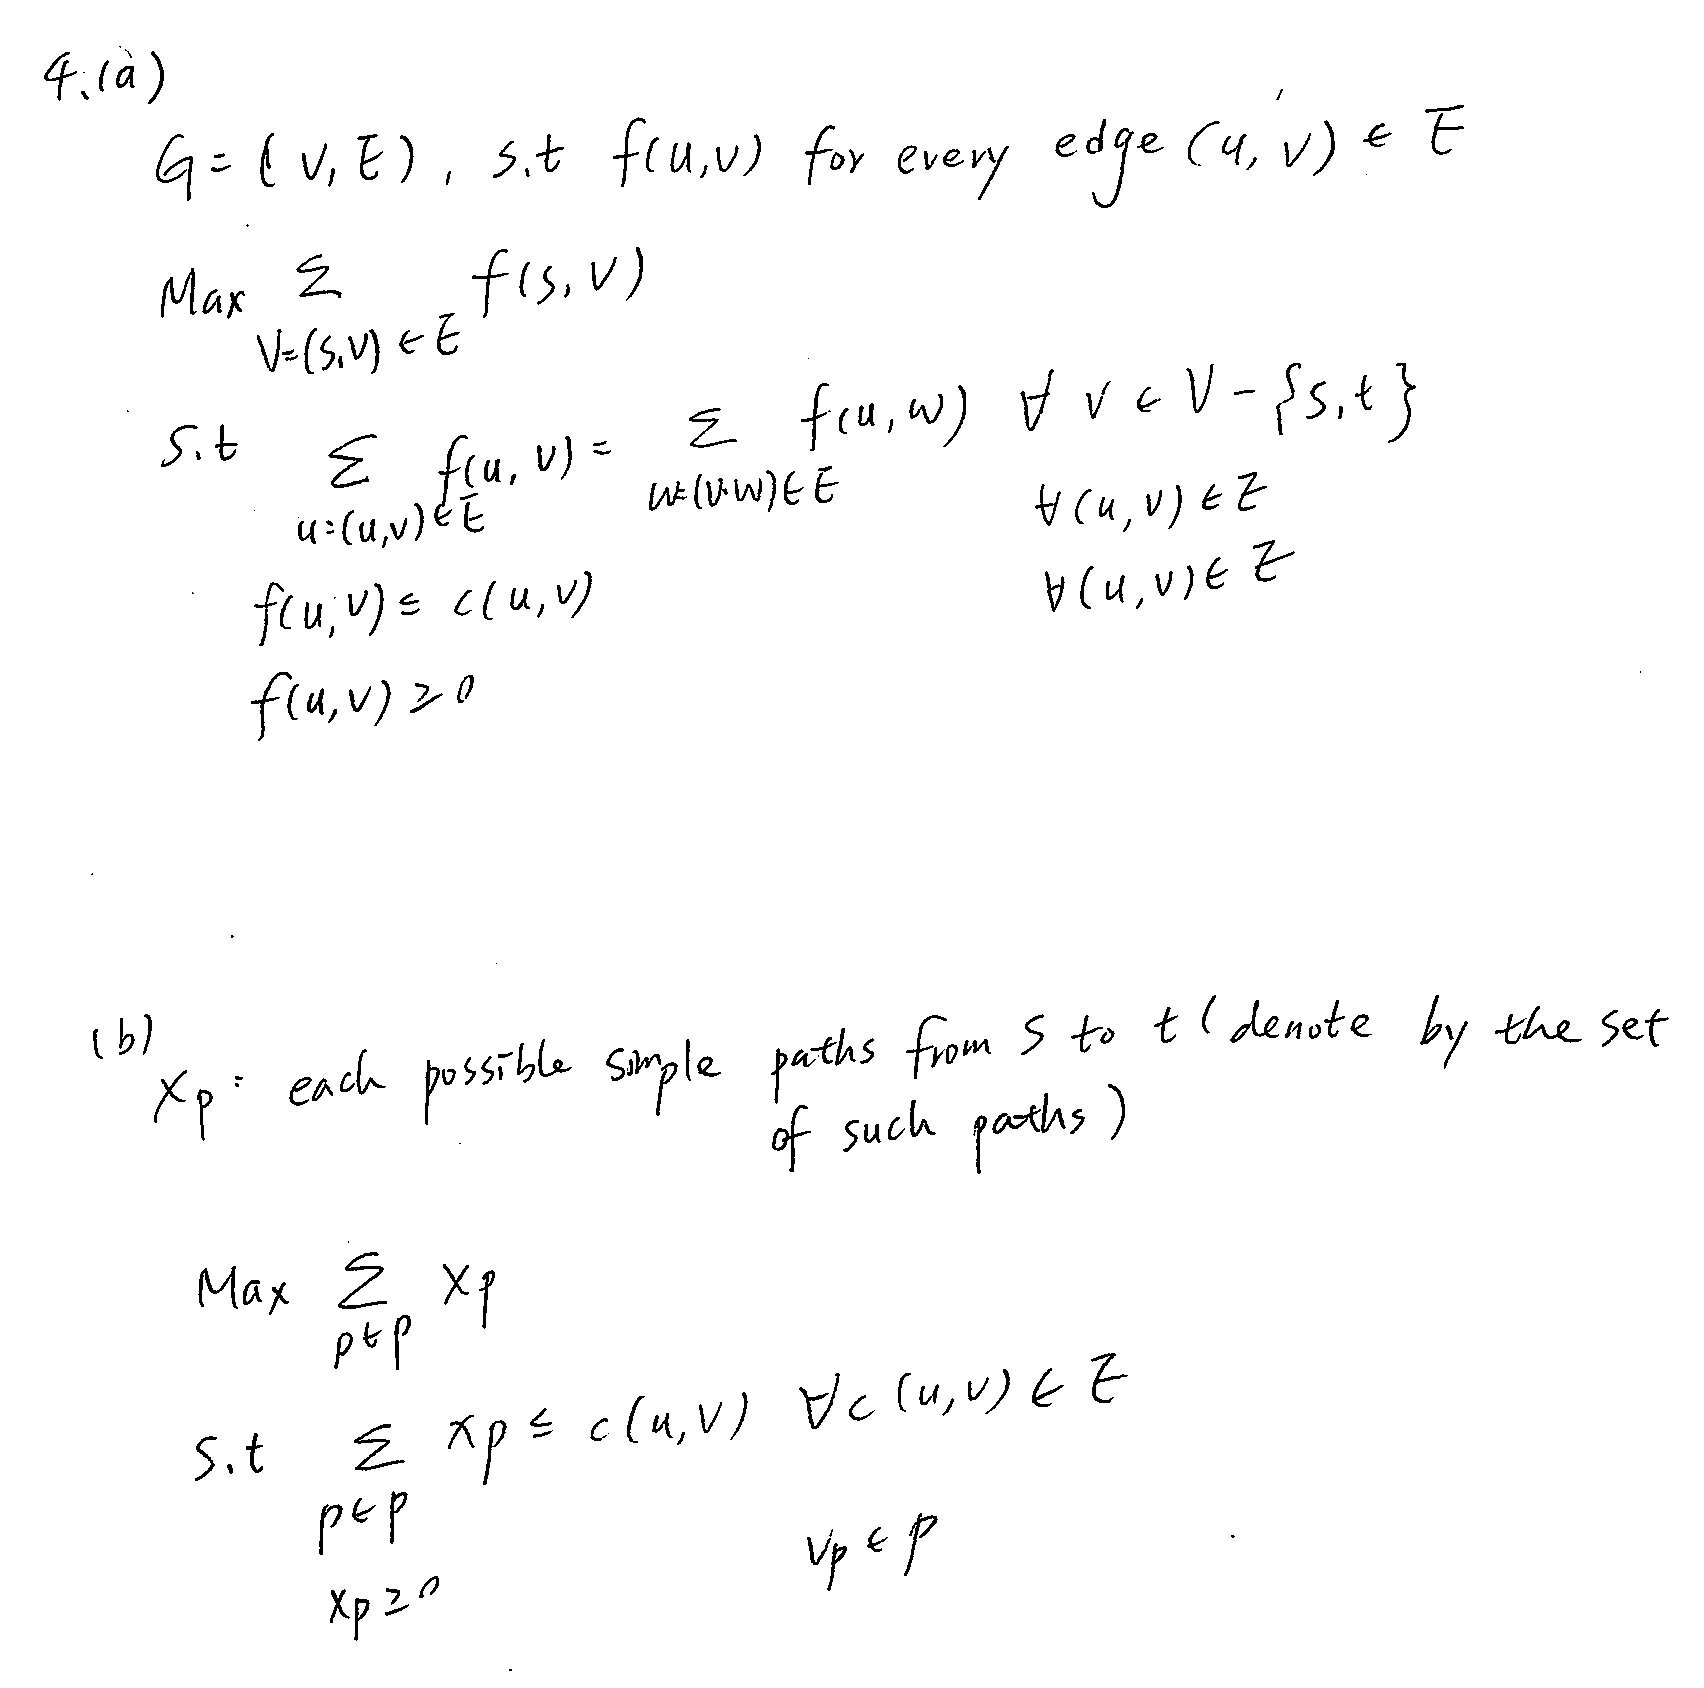 4.(a)
G = (V, E), s.t f(u,v) for every edge (u, v) ∈ E
Max Σ f(s, v)
V=(s,v) ∈ E
s.t Σ f(u, v) = Σ f(u, w) ∀ v ∈ V - {s,t}
u:(u,v) ∈ E w:(v,w) ∈ E ∀(u, v) ∈ E
f(u, v) ≤ c(u, v) ∀(u, v) ∈ E
f(u, v) ≥ 0
(b)
xp: each possible simple paths from s to t (denote by the set
of such paths)
Max Σ xp
p∈p
s.t Σ xp ≤ c(u, v) ∀c(u,v) ∈ E
p∈p
xp ≥ 0 ∀p ∈ p